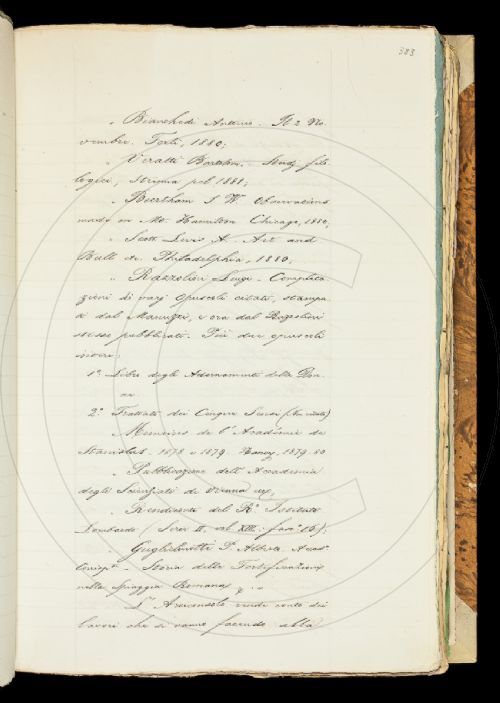 383
" Bianchedi Antonio - Il 2 No-
vembre. Forlì, 1880;
" Veratti Bartolom. Studj filo
logici, Strenna pel 1881;
" S. W. Observations
made on Mt. Hamilton Chicago, 1880;
" Scott Lewis A. Art and
Philadelphia, 1880;
" Razzolini Luigi - Compila-
zioni di varj opuscoli citati, stampa-
ti dal Manuzzi, e ora dal Razzolini
stesso pubblicati. Più due opuscoli
cioè:
1º. Libro degli Adornamenti delle Don-
ne
2º Trattato dei Cinque Sensi (
" Memoires de l'Académie de
Stanislas. 1878 e 1879. Nancy, 1879. 80
" Pubblicazione dell'Accademia
degli Scienziati di Vienna
" Rendiconti del Rº. Istituto
Lombardo (Serie II, vol XIII: fasº 16);
" Guglielmotti P. Alberto, Accadº
Corrispº - Storia delle Fortificazioni
nella Spiaggia Romana
L' rende conto dei
lavori che si vanno facendo alla